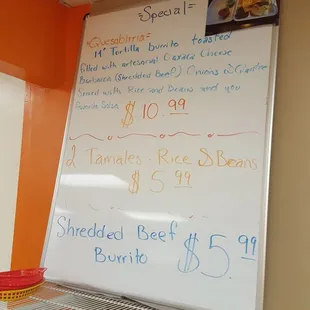 =Special=
Quesabirria=
14" Tortilla burrito toasted
filled with artesanal Oaxaca Cheese
Barbacoa (Shredded Beef) Onions & Cilantro
Served with Rice and Beans and you
Favorite Salsa
$10.99
2 Tamales - Rice & Beans
$5.99
Shredded Beef
Burrito $5.99